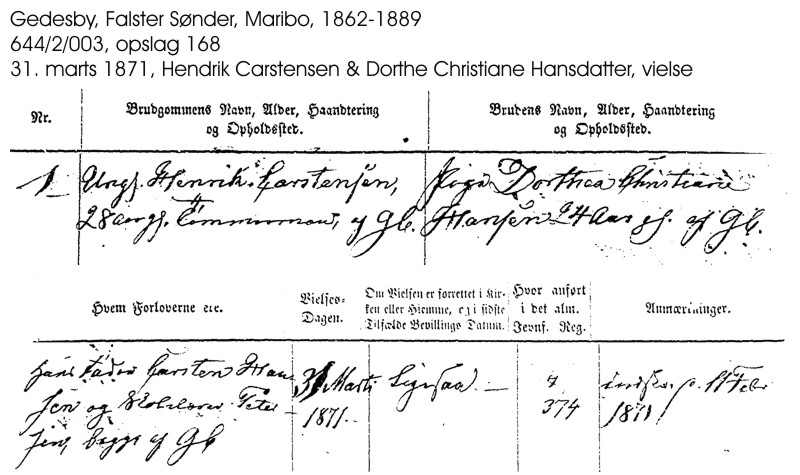 Gedesby, Falster Sønder, Maribo, 1862-1889
644/2/003, opslag 168
31. marts 1871, Hendrik Carstensen & Dorthe Christiane Hansdatter, vielse
Nr.
Brudgommens Navn, Alder, Haandtering
og Opholdssted.
Brudens Navn, Alder, Haandtering
og Opholdssted.
1
Ungk. Henrik Carstensen,
28 aar gl. Tømmermand, af Gb.
Pige Dorthea Christiane
Hansen 24 Aar gl. af Gb.
Hvem Forloverne ere.
Vielses-
Dagen.
Om Vielsen er forrettet i Kir-
ken eller Hjemme, og i sidste
Tilfælde Bevillings Datum.
Hvor anført
i det alm.
Jevnf. Reg.
Anmærkninger.
Hans Fader Carsten Han
sen og Peter
sen, begge af Gb
31 Marts
1871.
Ligesaa. —
374
p. 11 Febr
1871